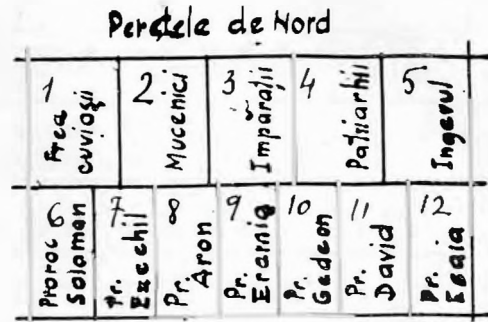 Peretele de Nord
1 Prea cuvioşii
2 Mucenici
3 Împăraţii
4 Patriarhii
5 Ingerul
6 Proroc Solomon
7 Pr. Ezechil
8 Pr. Aron
9 Pr. Eramia
10 Pr. Gedeon
11 Pr. David
12 Pr. Isaia